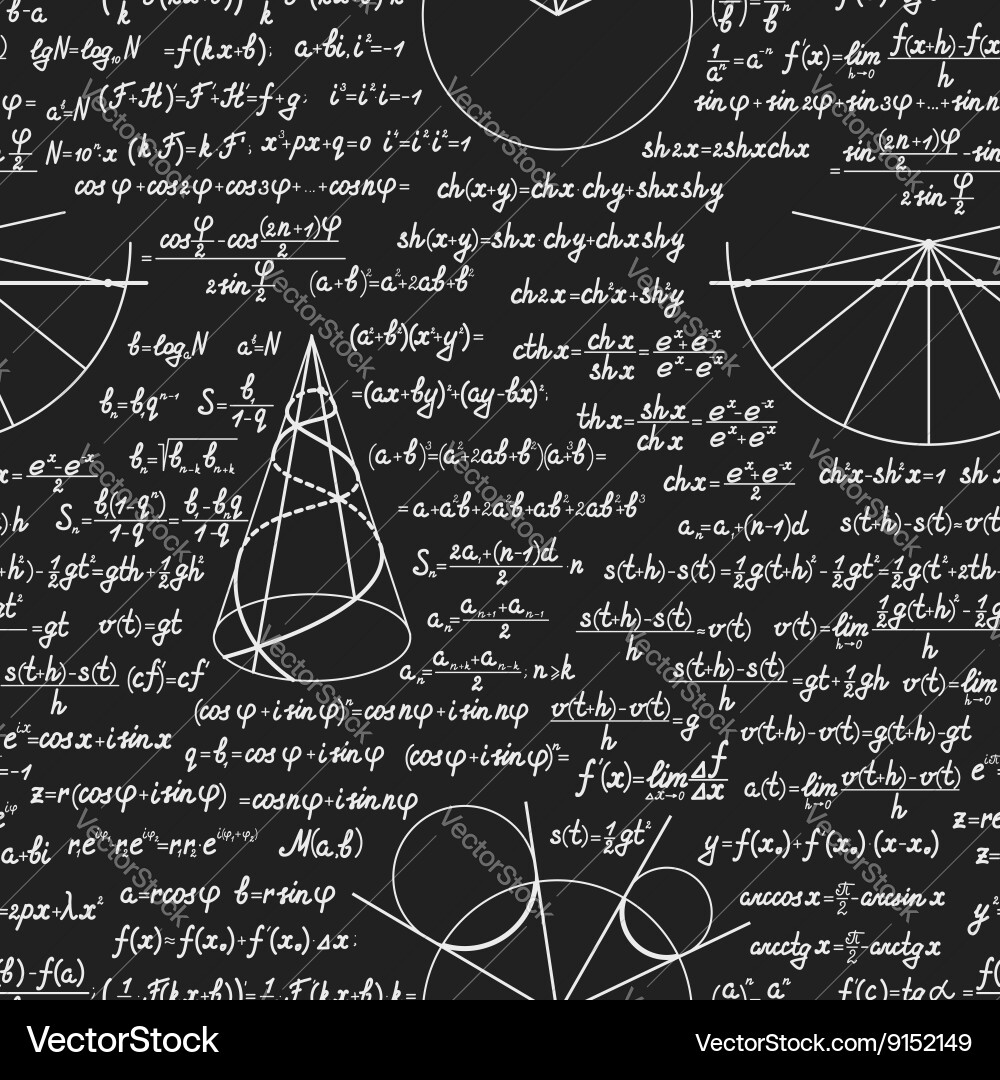 b-a
lgN=log₁₀N =f(kx+b); a+bi, i²=-1
1/aⁿ=a⁻ⁿ f'(x)=lim h→0 f(x+h)-f(x / h
φ= a^b=N (F+H)'=F'+H'=f+g; i³=i²·i=-i
sin φ + sin 2φ + sin 3φ + ... + sin n
N=10ⁿ·x (k·F)'=k·F'; x³+px+q=0 i⁴=i²·i²=1
sh 2x=2shxchx = sin (2n+1)φ/2 - sin / 2 sin φ/2
cos φ + cos2φ + cos3φ + ... + cosnφ=
ch(x+y)=chx·chy+shxshy
= cos φ/2 - cos (2n+1)φ/2 / 2 sin φ/2
sh(x+y)=shx·chy+chxshy
(a+b)²=a²+2ab+b²
ch2x=ch²x+sh²y
b=logₐN a^b=N (a²+b²)(x²+y²)=
cthx= chx/shx = eˣ+e⁻ˣ/eˣ-e⁻ˣ
bₙ=b₁qⁿ⁻¹ S= b₁/1-q =(ax+by)²+(ay-bx)²;
thx= shx/chx = eˣ-e⁻ˣ/eˣ+e⁻ˣ
x= eˣ-e⁻ˣ/2 bₙ=√bₙ₋ₖbₙ₊ₖ (a+b)³=(a²+2ab+b²)(a+b)=
chx= eˣ+e⁻ˣ/2 ch²x-sh²x=1 sh x
)h Sₙ= b₁(1-qⁿ)/1-q = b₁-bₙq/1-q =a+a²b+2a²b+ab²+2ab²+b³
aₙ=a₁+(n-1)d s(t+h)-s(t)≈v(t
+h²)-½gt²=gth+½gh² Sₙ= 2a₁+(n-1)d/2 ·n s(t+h)-s(t)=½g(t+h)²-½gt²=½g(t²+2th+
gt² =gt v(t)=gt aₙ= aₙ₊₁+aₙ₋₁/2 s(t+h)-s(t)/h ≈v(t) v(t)=lim h→0 ½g(t+h)²-½g / h
s(t+h)-s(t)/h (cf)'=cf' aₙ= aₙ₊ₖ+aₙ₋ₖ/2; n≥k s(t+h)-s(t)/h =gt+½gh v(t)=lim h→0
(cos φ + i sin φ)ⁿ=cos nφ + i sin nφ v(t+h)-v(t)/h =g
e^ix=cosx+isinx q=b₁=cos φ + i sin φ (cosφ+isinφ)ⁿ= v(t+h)-v(t)=g(t+h)-gt
=-1 f'(x)=lim Δx→0 Δf/Δx a(t)=lim h→0 v(t+h)-v(t)/h e^iπ
e^iφ z=r(cosφ+isinφ) =cosnφ+isinnφ z=re
a+bi r₁e^iφ₁·r₂e^iφ₂=r₁r₂·e^i(φ₁+φ₂) M(a,b) s(t)=½gt² y=f(x₀)+f'(x₀)·(x-x₀) z=
=2px+λx² a=rcosφ b=rsinφ arccosx=π/2-arcsinx y²
f(x)≈f(x₀)+f'(x₀)·Δx; arcctgx=π/2-arctgx
b)-f(a) ; (1 F(kx+b))'=1 F'(kx+b)·k= (a)ⁿ aⁿ f'(c)=tgα= f(
VectorStock
VectorStock
VectorStock.com/9152149